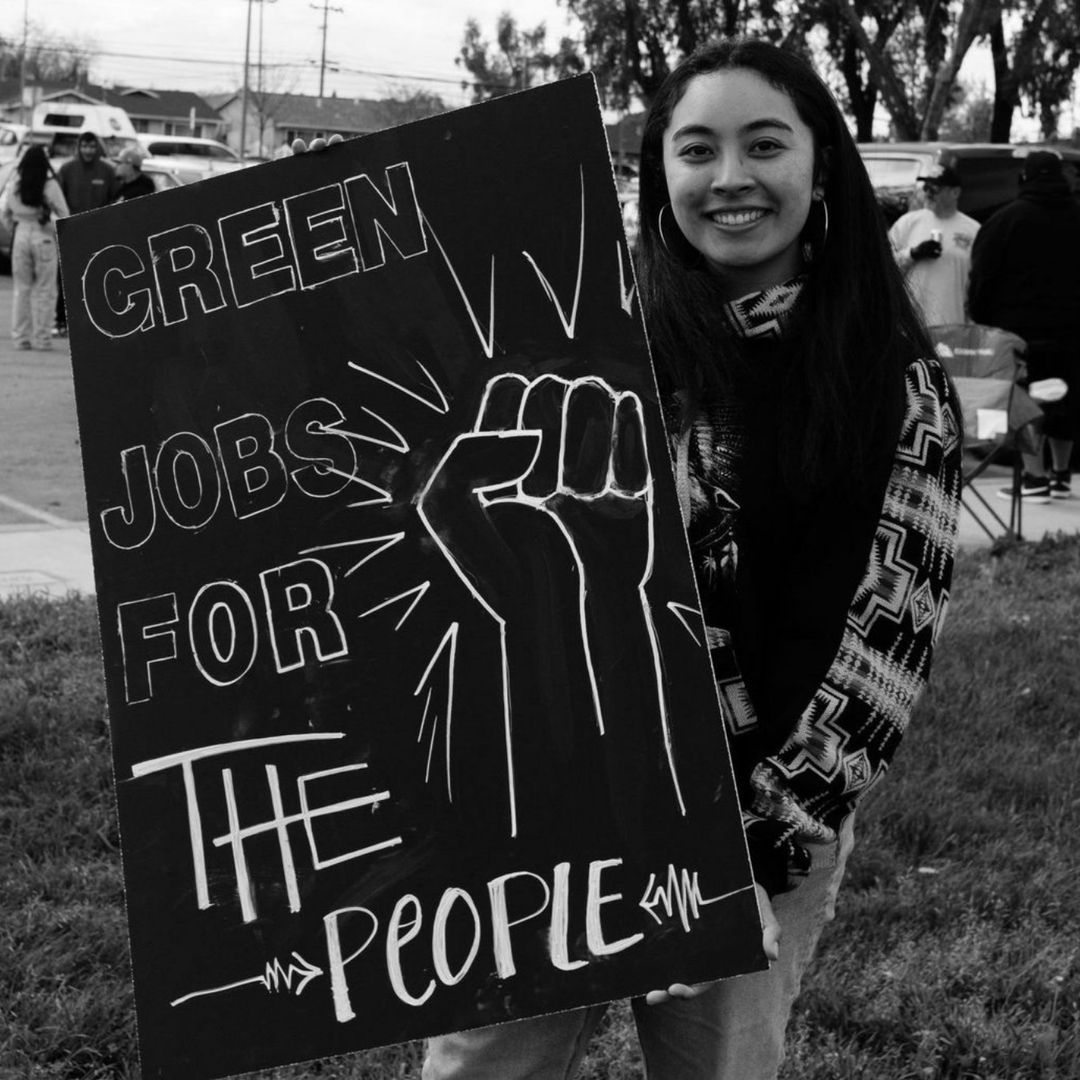 GREEN
JOBS
FOR
THE
PEOPLE